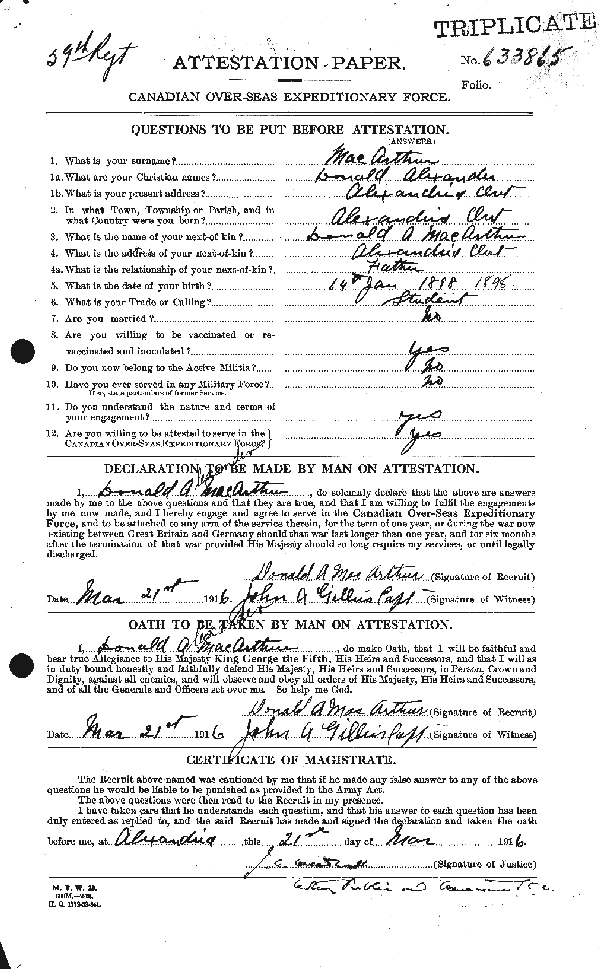 TRIPLICATE
59th Regt
ATTESTATION PAPER.
No. 633865
Folio.
CANADIAN OVER-SEAS EXPEDITIONARY FORCE.
QUESTIONS TO BE PUT BEFORE ATTESTATION.
(ANSWERS)
1. What is your surname? MacArthur
1a. What are your Christian names? Donald Alexander
1b. What is your present address? Alexandria Ont
2. In what Town, Township or Parish, and in
what Country were you born? Alexandria Ont
3. What is the name of your next-of kin? Donald A MacArthur
4. What is the address of your next-of-kin? Alexandria Ont
4a. What is the relationship of your next-of-kin? Father
5. What is the date of your birth? 14th Jan 1898 1898
6. What is your Trade or Calling? Student
7. Are you married? No
8. Are you willing to be vaccinated or re-
vaccinated and inoculated? Yes
9. Do you now belong to the Active Militia? No
10. Have you ever served in any Military Force? No
If so, state particulars of former Service.
11. Do you understand the nature and terms of
your engagement? Yes
12. Are you willing to be attested to serve in the
CANADIAN OVER-SEAS EXPEDITIONARY FORCE? Yes
DECLARATION TO BE MADE BY MAN ON ATTESTATION.
I, Donald A MacArthur, do solemnly declare that the above are answers
made by me to the above questions and that they are true, and that I am willing to fulfil the engagements
by me now made, and I hereby engage and agree to serve in the Canadian Over-Seas Expeditionary
Force, and to be attached to any arm of the service therein, for the term of one year, or during the war now
existing between Great Britain and Germany should that war last longer than one year, and for six months
after the termination of that war provided His Majesty should so long require my services, or until legally
discharged.
Donald A MacArthur (Signature of Recruit)
Date Mar 21st 1916. John A Gillies Capt (Signature of Witness)
OATH TO BE TAKEN BY MAN ON ATTESTATION.
I, Donald A MacArthur, do make Oath, that I will be faithful and
bear true Allegiance to His Majesty King George the Fifth, His Heirs and Successors, and that I will as
in duty bound honestly and faithfully defend His Majesty, His Heirs and Successors, in Person, Crown and
Dignity, against all enemies, and will observe and obey all orders of His Majesty, His Heirs and Successors,
and of all the Generals and Officers set over me. So help me God.
Donald A MacArthur (Signature of Recruit)
Date Mar 21st 1916 John A Gillies Capt (Signature of Witness)
CERTIFICATE OF MAGISTRATE.
The Recruit above named was cautioned by me that if he made any false answer to any of the above
questions he would be liable to be punished as provided in the Army Act.
The above questions were then read to the Recruit in my presence.
I have taken care that he understands each question, and that his answer to each question has been
duly entered as replied to, and the said Recruit has made and signed the declaration and taken the oath
before me, at Alexandria this 21st day of Mar 1916.
(Signature of Justice)
M. F. W. 23.